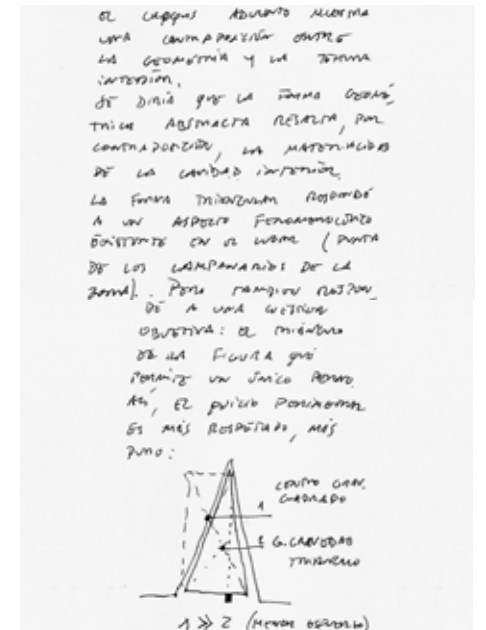 EL CROQUIS ADJUNTO MUESTRA
UNA CONTRAPOSICIÓN ENTRE
LA GEOMETRÍA Y LA FORMA
INTERIOR.
SE DIRÍA QUE LA FORMA GEOMÉ,
TRICA ABSTRACTA RESALTA, POR
CONTRAPOSICIÓN, LA MATERIALIDAD
DE LA CAVIDAD INTERIOR.
LA FORMA TRIANGULAR RESPONDE
A UN ASPECTO FENOMENOLÓGICO
EXISTENTE EN EL LUGAR (PUNTA
DE LOS CAMPANARIOS DE LA
ZONA). PERO TAMBIÉN RESPON_
DE A UNA CUESTIÓN
OBJETIVA: EL TRIÁNGULO
ES LA FIGURA QUE
PERMITE UN ÚNICO PERNO.
ASÍ, EL QUICIO PERIMETRAL
ES MÁS RESPETADO, MÁS
PURO:
CENTRO GRAV.
CUADRADO
1
2 G. GRAVEDAD
TRIÁNGULO
1 >> 2 (MENOR ESFUERZO)